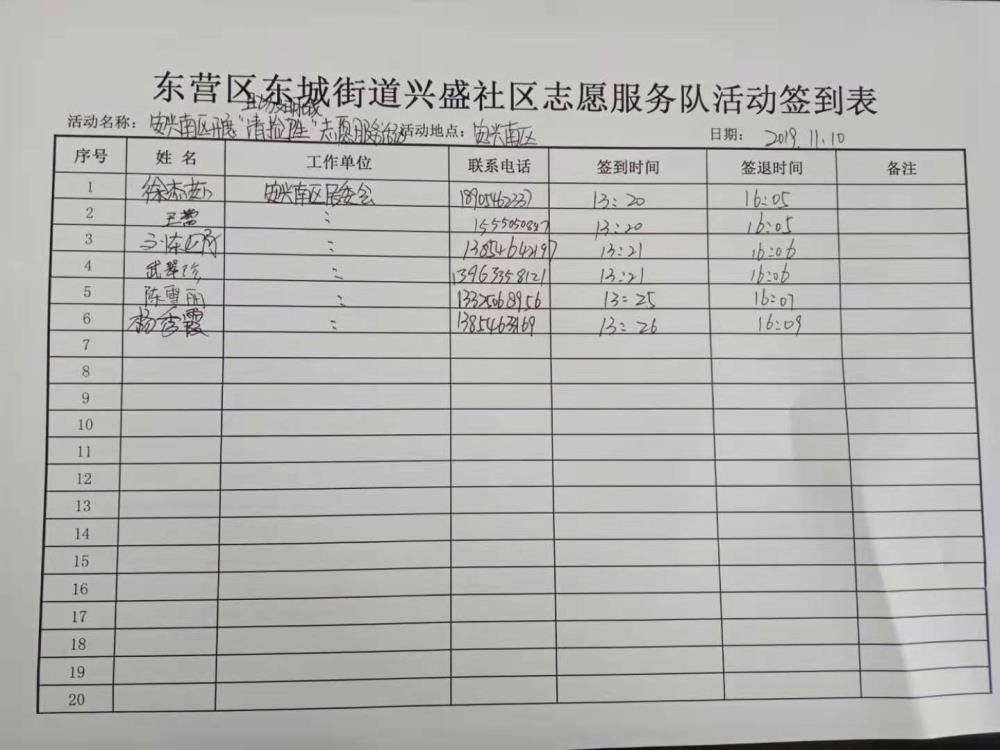 东营区东城街道兴盛社区志愿服务队活动签到表
活动名称： 安兴南区开展"清捡 "志愿服务活动 活动地点： 安兴南区 日期： 2019.11.10
序号 姓名 工作单位 联系电话 签到时间 签退时间 备注
1 徐杰茹 安兴南区居委会 18905462337 13:20 16:05
2 王营 〃 15550508 13:20 16:05
3 〃 13854642197 13:21 16:06
4 武翠珍 〃 13963358121 13:21 16:06
5 陈雪丽 〃 13325068956 13:25 16:07
6 杨秀霞 〃 13:26 16:09
7
8
9
10
11
12
13
14
15
16
17
18
19
20